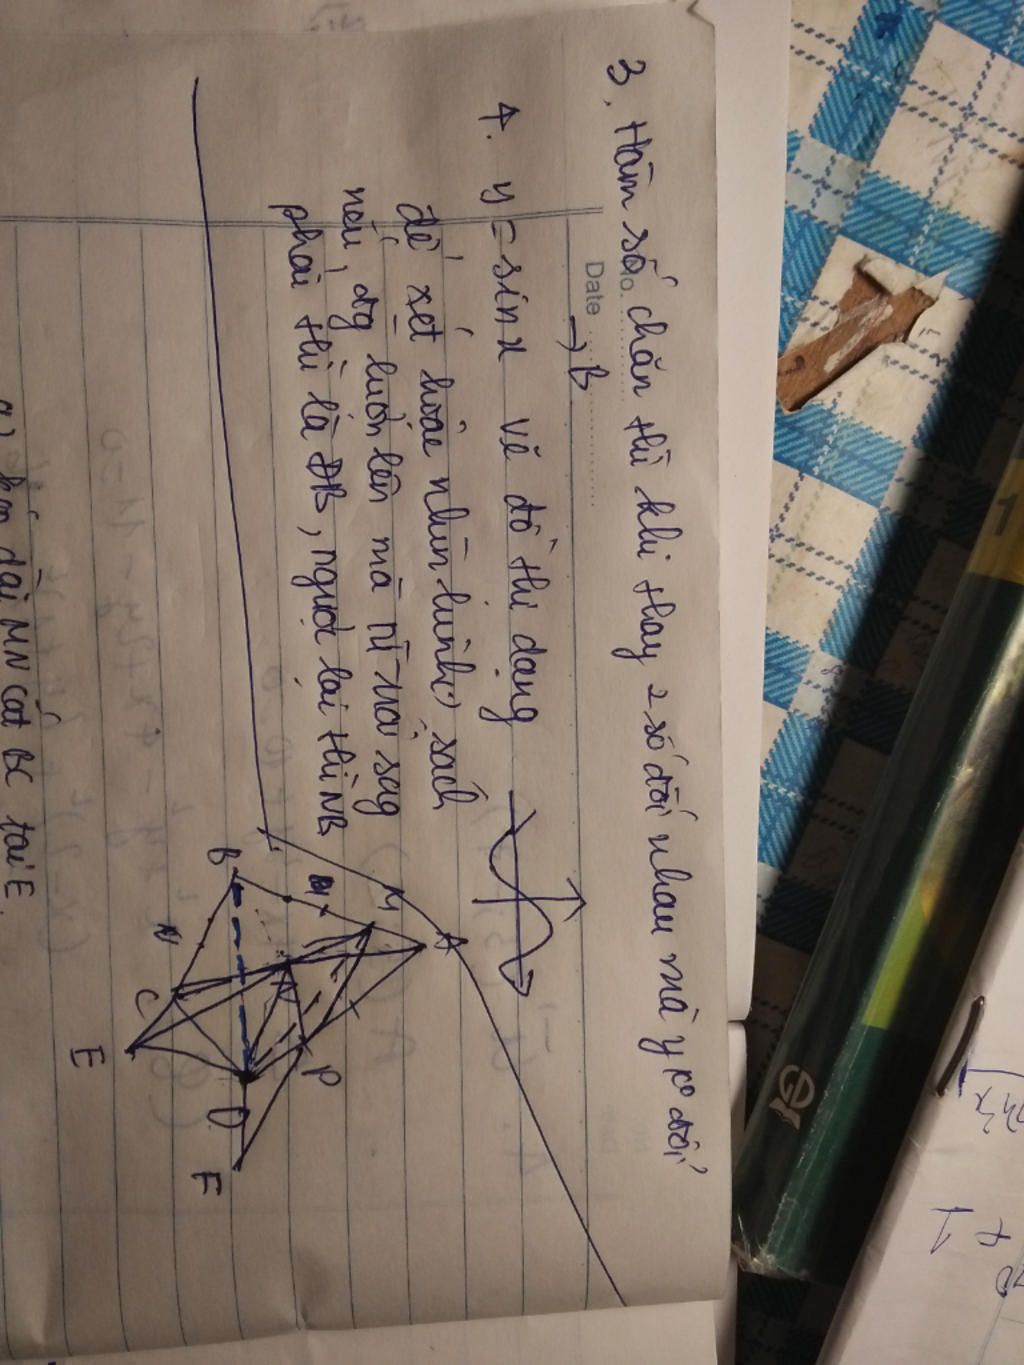 No.
Date
3. Hàm số chẵn thì khi thay 2 số đối nhau mà y ko đổi
→ B
4. y = sin x vẽ đồ thị dạng
để xét hoặc nhìn hình sách
nếu, đg luôn lên mà từ trái sag
phải thì là ĐB, ngược lại thì NB
A
M
B
N
N
P
C
D
E
F
kéo dài MN cắt BC tại E
1
+ 1